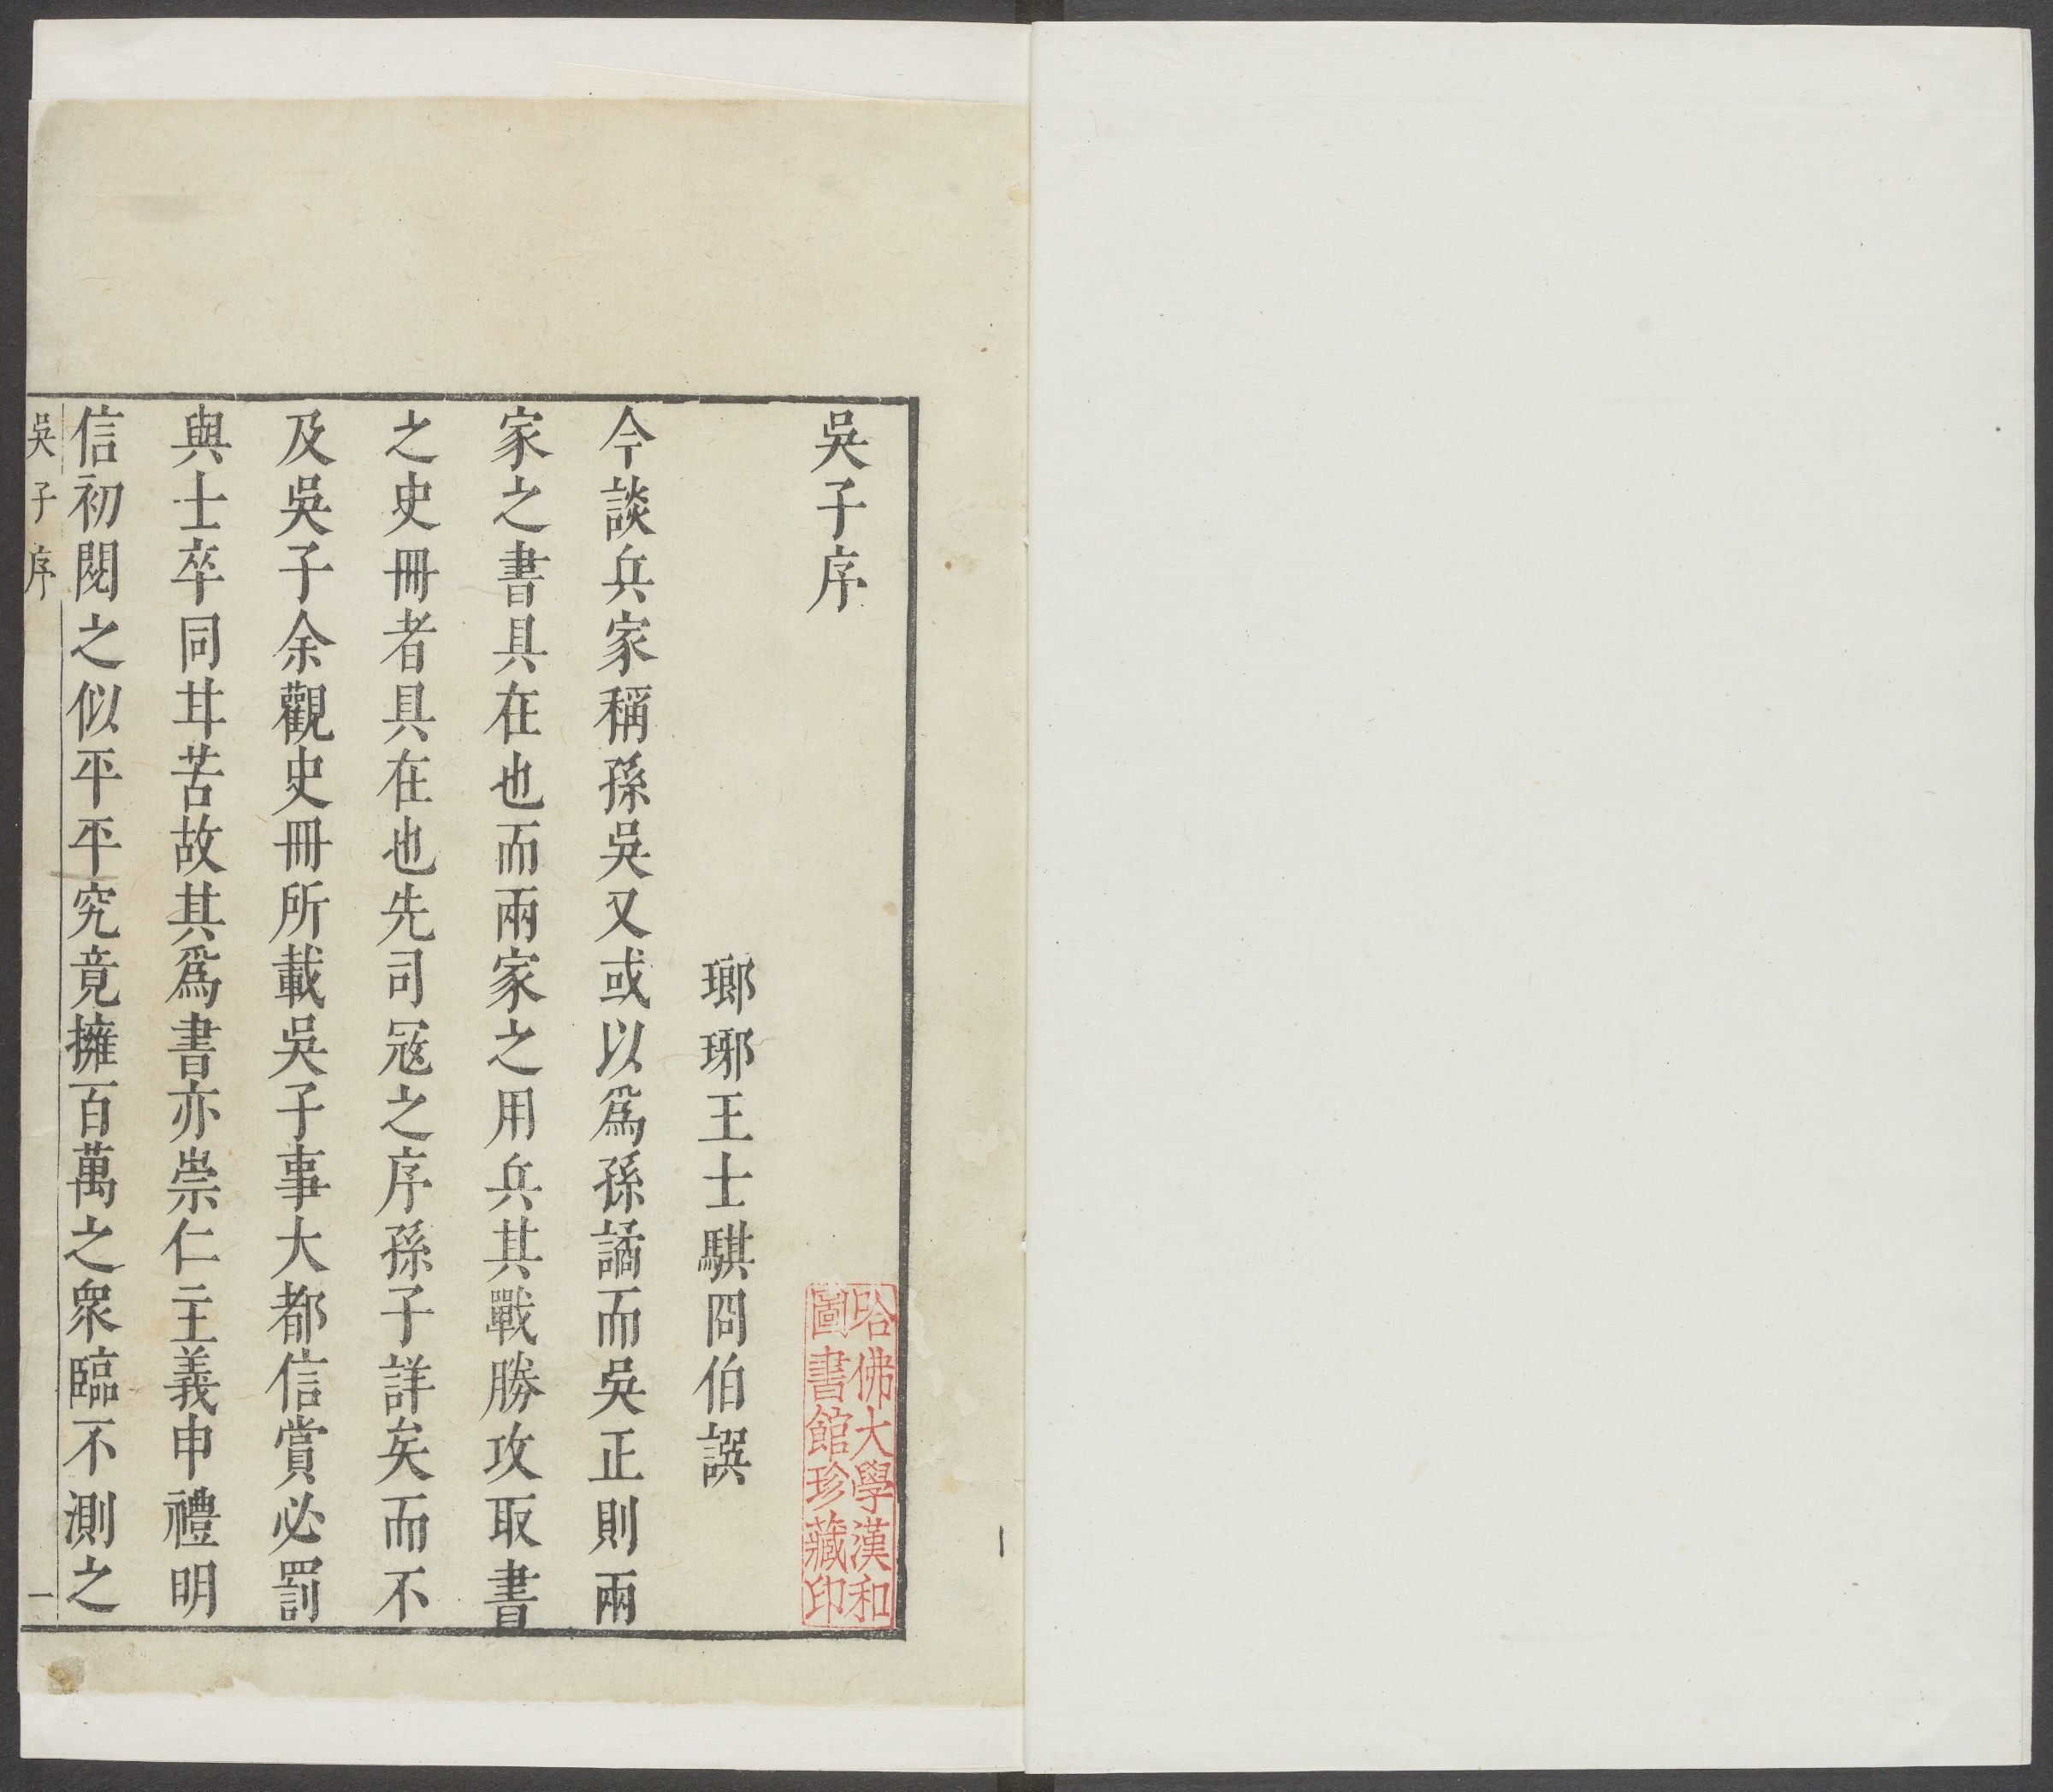 吳子序
瑯琊王士騏冏伯譔
今談兵家稱孫吳又或以爲孫譎而吳正則兩
家之書具在也而兩家之用兵其戰勝攻取書
之史冊者具在也先司寇之序孫子詳矣而不
及吳子余觀史冊所載吳子事大都信賞必罰
與士卒同甘苦故其爲書亦崇仁主義申禮明
信初閱之似平平究竟擁百萬之衆臨不測之
吳子序
一
哈佛大學漢和
圖書館珍藏印